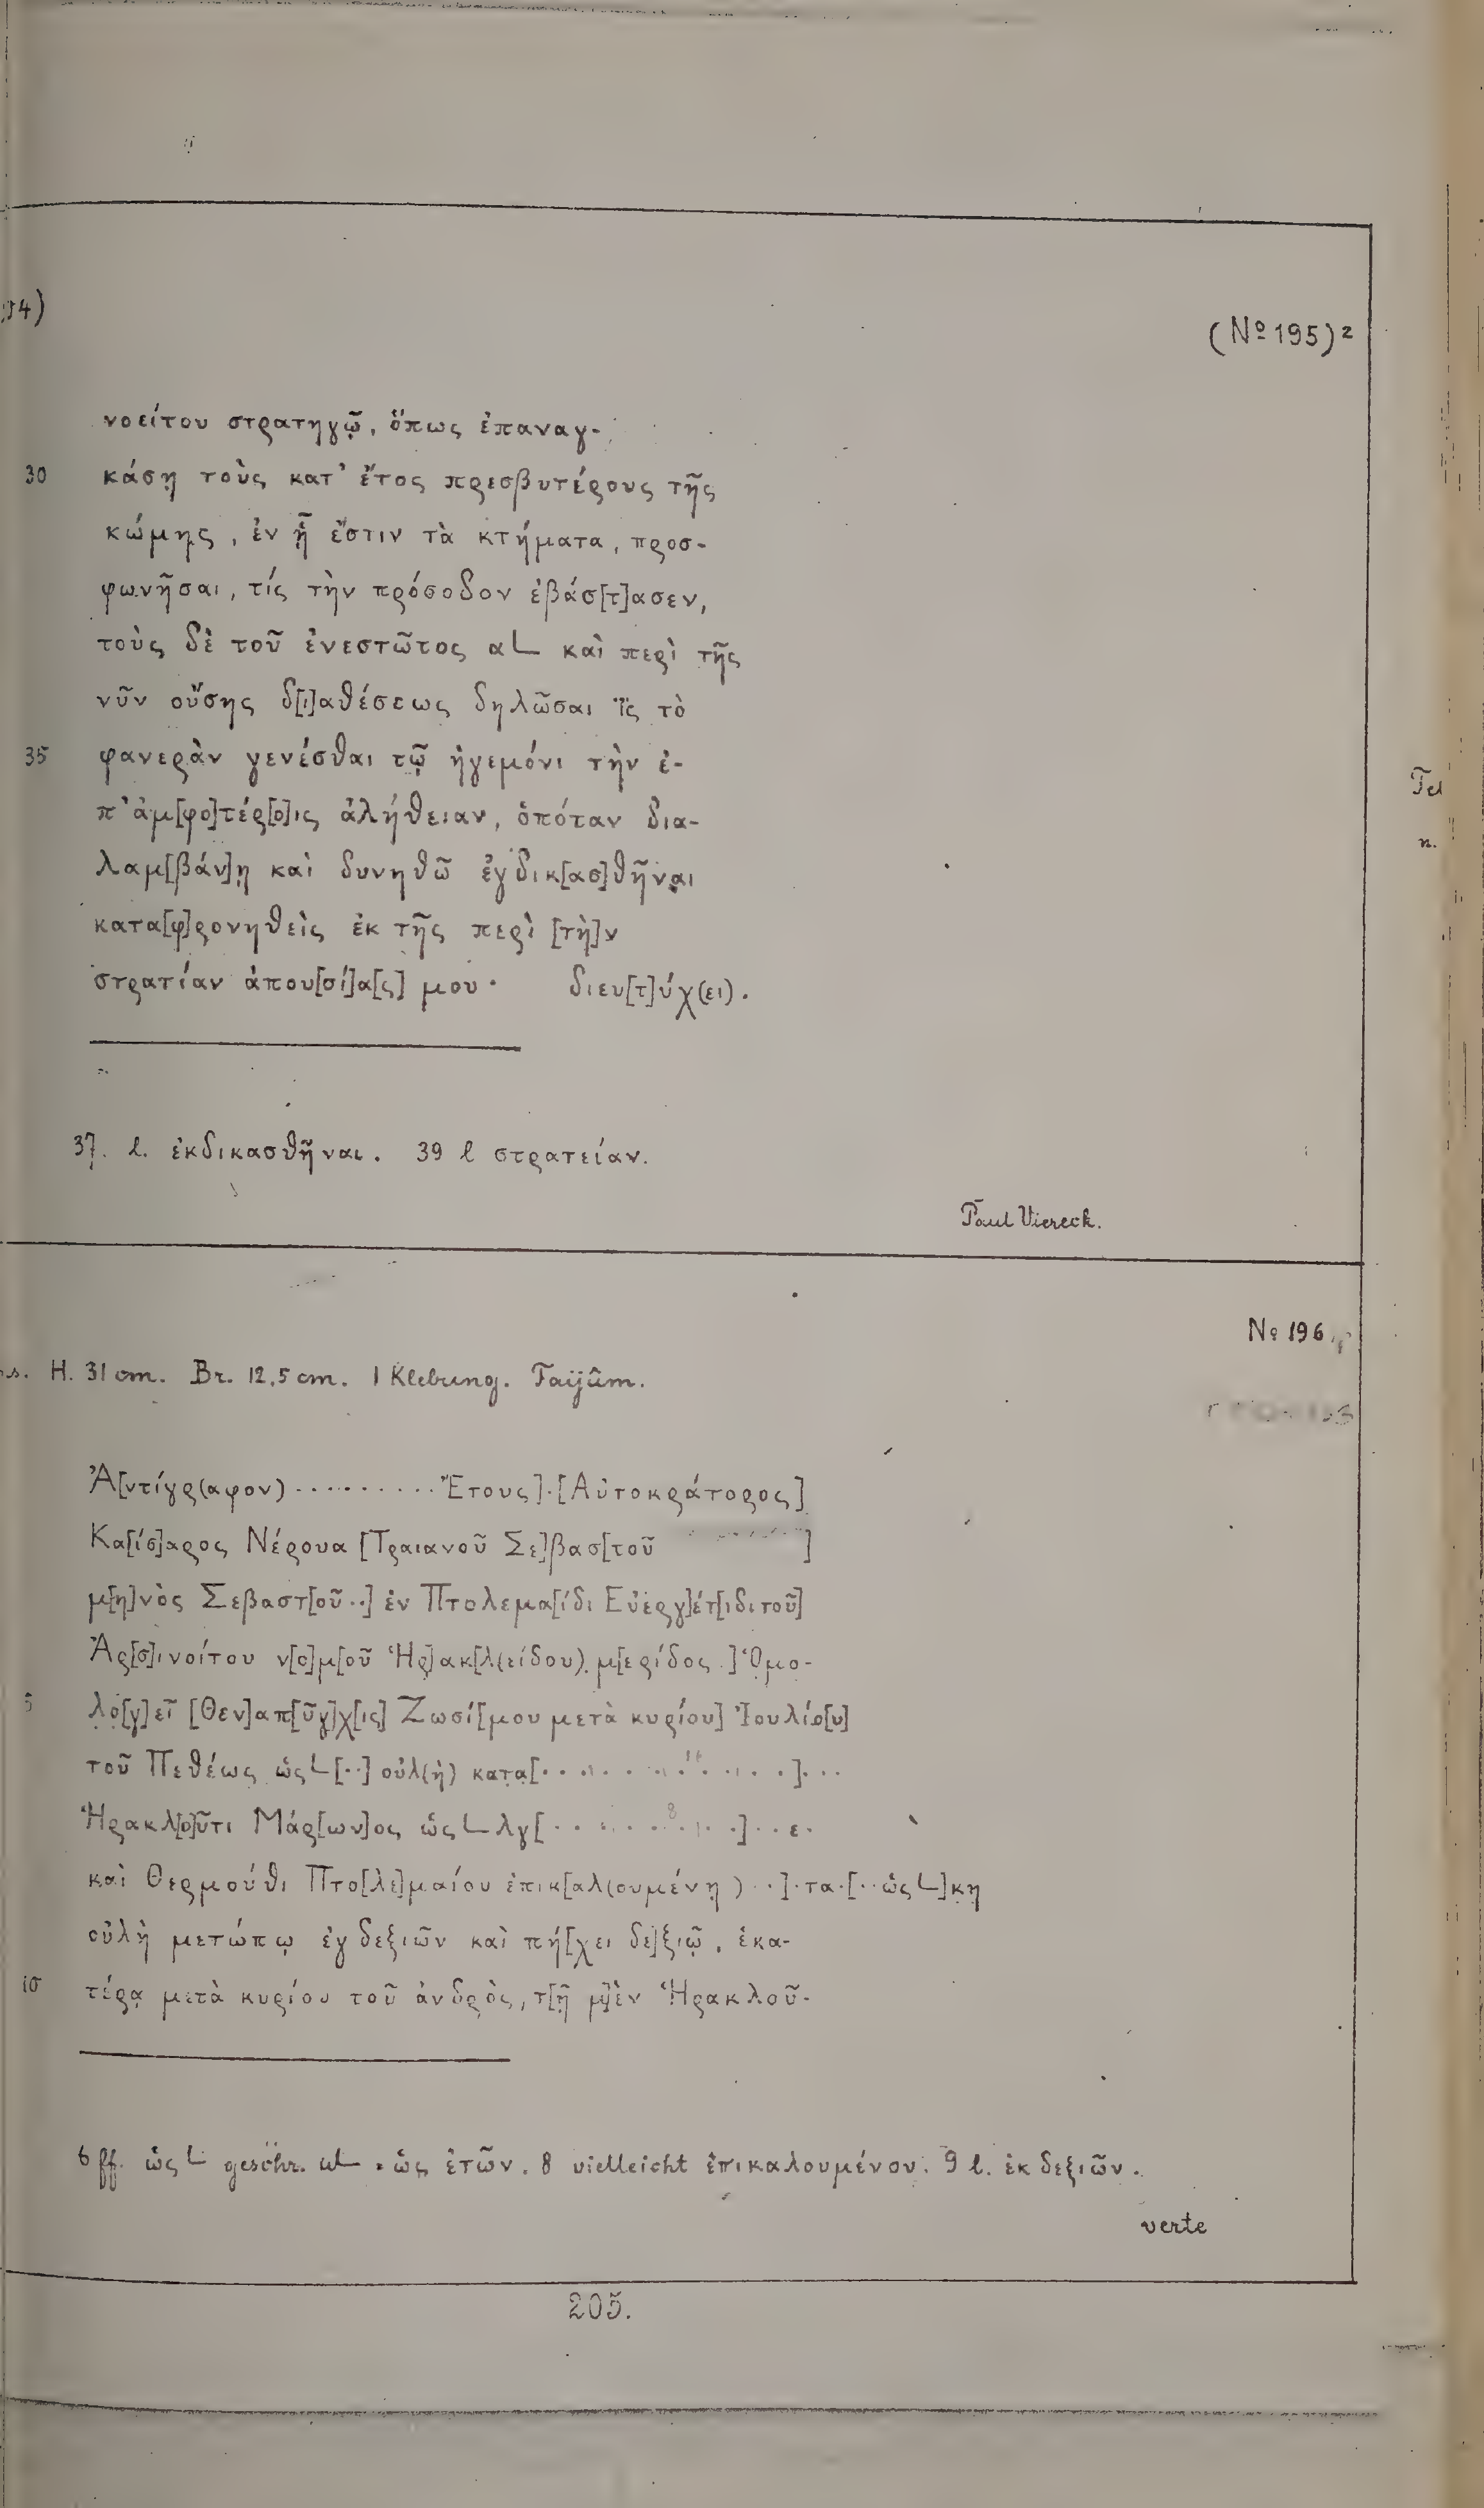 94)
(No 195)²
νοείτου στρατηγῷ, ὅπως ἐπαναγ-
30 κάσῃ τοὺς κατ' ἔτος πρεσβυτέρους τῆς
κώμης, ἐν ᾗ ἐστιν τὰ κτήματα, προσ-
φωνῆσαι, τίς τὴν πρόσοδον ἐβάσ[τ]ασεν,
τοὺς δὲ τοῦ ἐνεστῶτος αL καὶ περὶ τῆς
νῦν οὔσης δ[ι]αθέσεως δηλῶσαι ἲς τὸ
35 φανερὰν γενέσθαι τῷ ἡγεμόνι τὴν ἐ-
π' ἀμ[φο]τέρ[ο]ις ἀλήθειαν, ὁπόταν δια-
λαμ[βάν]ῃ καὶ δυνηθῶ ἐγδικ[ασ]θῆναι
κατα[φ]ρονηθεὶς ἐκ τῆς περὶ [τὴ]ν
στρατίαν ἀπου[σί]α[ς] μου. διευ[τ]ύχ(ει).
37. l. ἐκδικασθῆναι. 39 l στρατείαν.
Paul Viereck.
No 196
H. 31 cm. Br. 12,5 cm. 1 Klebung. Faijûm.
Ἀ[ντίγρ(αφον) .......... Ἔτους].[Αὐτοκράτορος]
Κα[ίσ]αρος Νέρουα [Τραιανοῦ Σε]βασ[τοῦ ]
μ[η]νὸς Σεβαστ[οῦ ..] ἐν Πτολεμα[ίδι Εὐεργ]έτ[ιδι τοῦ]
Ἀρ[σ]ινοίτου ν[ο]μ[οῦ Ἡρ]ακ[λ(είδου) μ[ερίδος ] Ὁμο-
5 λο[γ]εῖ [Θεν]απ[ῦγ]χ[ις] Ζωσί[μου μετὰ κυρίου] Ἰουλίο[υ]
τοῦ Πεθέως ὡςL[..] οὐλ(ὴ) κατα[............]....
Ἡρακλ[ο]ῦτι Μάρ[ων]ος ὡςLλγ[.........]..ε.
καὶ Θερμούθι Πτο[λε]μαίου ἐπικ[αλ(ουμένῃ )..].τα.[..ὡςL]κη
οὐλὴ μετώπῳ ἐγ δεξιῶν καὶ πή[χει δε]ξιῷ, ἑκα-
10 τέρᾳ μετὰ κυρίου τοῦ ἀνδρὸς, τ[ῇ μ]ὲν Ἡρακλοῦ-
6 ff. ὡςL geschr. ωL = ὡς ἐτῶν. 8 vielleicht ἐπικαλουμένου. 9 l. ἐκ δεξιῶν.
verte
205.